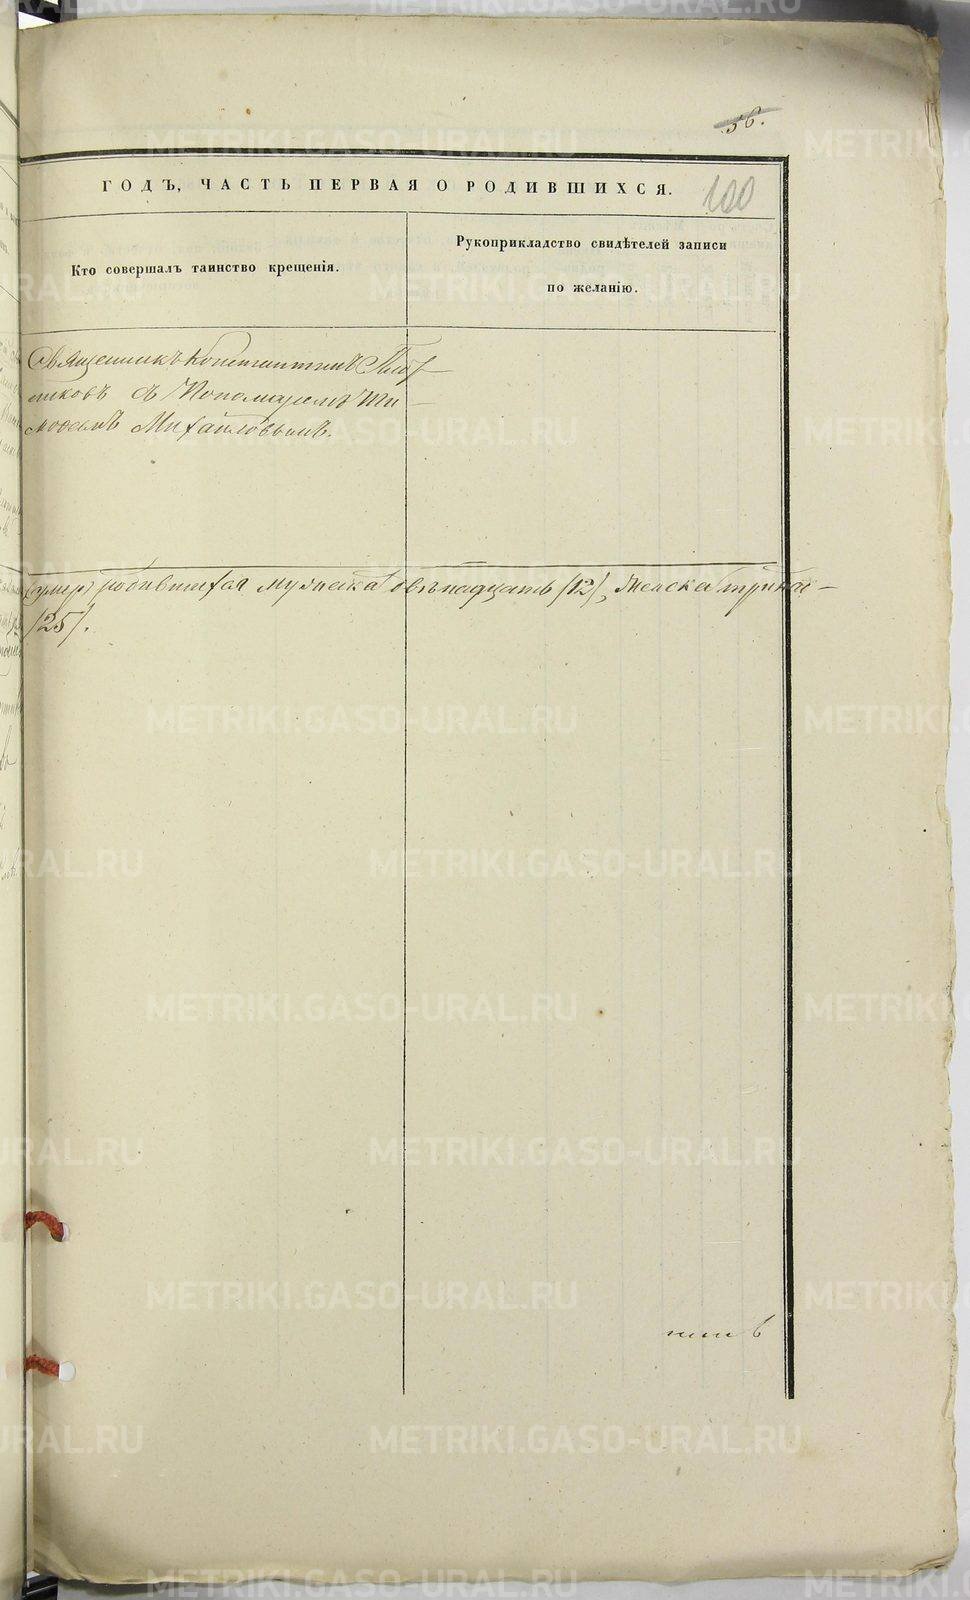 56.
ГОДЪ, ЧАСТЬ ПЕРВАЯ О РОДИВШИХСЯ.
100
Кто совершалъ таинство крещенія.
Рукоприкладство свидѣтелей записи
по желанію.
Священникъ Константинъ Плот
никовъ съ Пономаремъ Ти
мофеемъ Михайловымъ.
родившихся мужеска двѣнадцать (12), женска трина-
(25).
METRIKI.GASO-URAL.RU